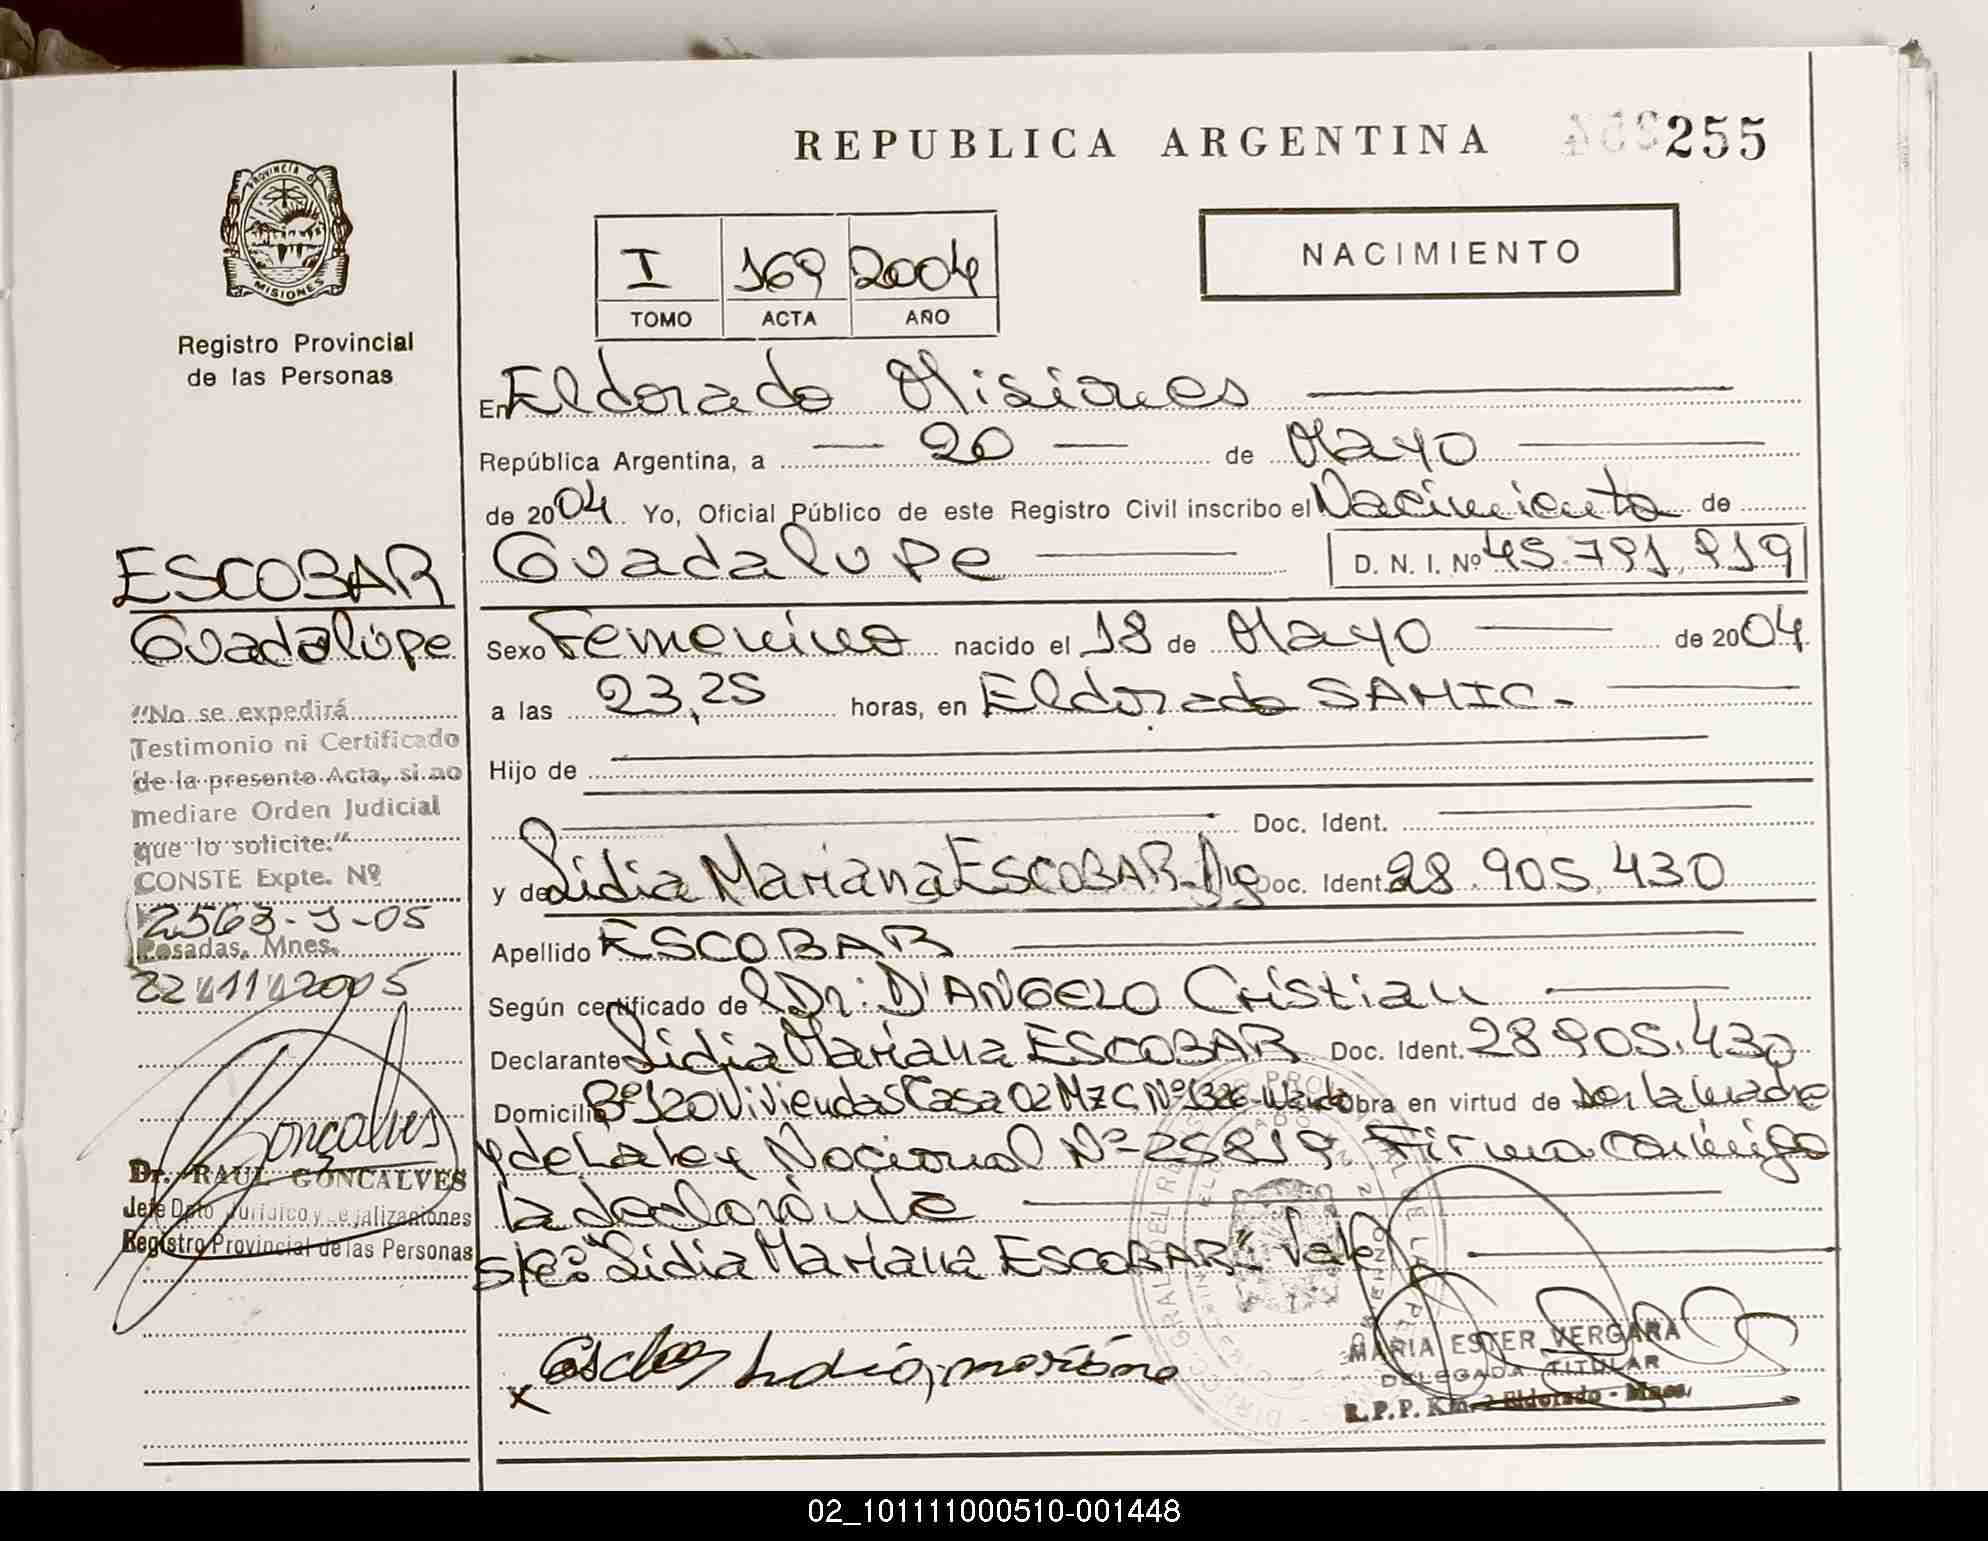 REPUBLICA ARGENTINA 255
PROVINCIA D
MISIONES
Registro Provincial
de las Personas
I 169 2004
TOMO ACTA AÑO
NACIMIENTO
En Eldorado Misiones
República Argentina, a 20 de Mayo
de 2004 Yo, Oficial Público de este Registro Civil inscribo el Nacimiento de
Guadalupe D. N. I. Nº 45.791.919
ESCOBAR
Guadalupe
Sexo Femenino nacido el 18 de Mayo de 2004
a las 23,25 horas, en Eldorado SAMIC.
Hijo de
Doc. Ident.
y de Lidia Mariana ESCOBAR Doc. Ident. 28.905.430
Apellido ESCOBAR
Según certificado de Dr: D'ANGELO Cristian
Declarante Lidia Mariana ESCOBAR Doc. Ident. 28.905.430
Domicilio Bº 120 Viviendas Casa 02 Mz C Nº Obra en virtud de ser la madre
y de La Ley Nacional Nº 25819 Firma conmigo
la declarante
s/r: "Lidia Mariana ESCOBAR" Vale
"No se expedirá
Testimonio ni Certificado
de la presente Acta, si no
mediare Orden Judicial
que lo solicite."
CONSTE Expte. Nº
2563-J-05
Posadas, Mnes.
22 11 2005
Gonçalves
Dr. RAUL GONCALVES
Jefe Dpto Jurídico y Legalizaciones
Registro Provincial de las Personas
x Escobar Lidia mariana
MARIA ESTER VERGARA
DELEGADA TITULAR
R.P.P. Km. 2 Eldorado - Mnes.
02_101111000510-001448